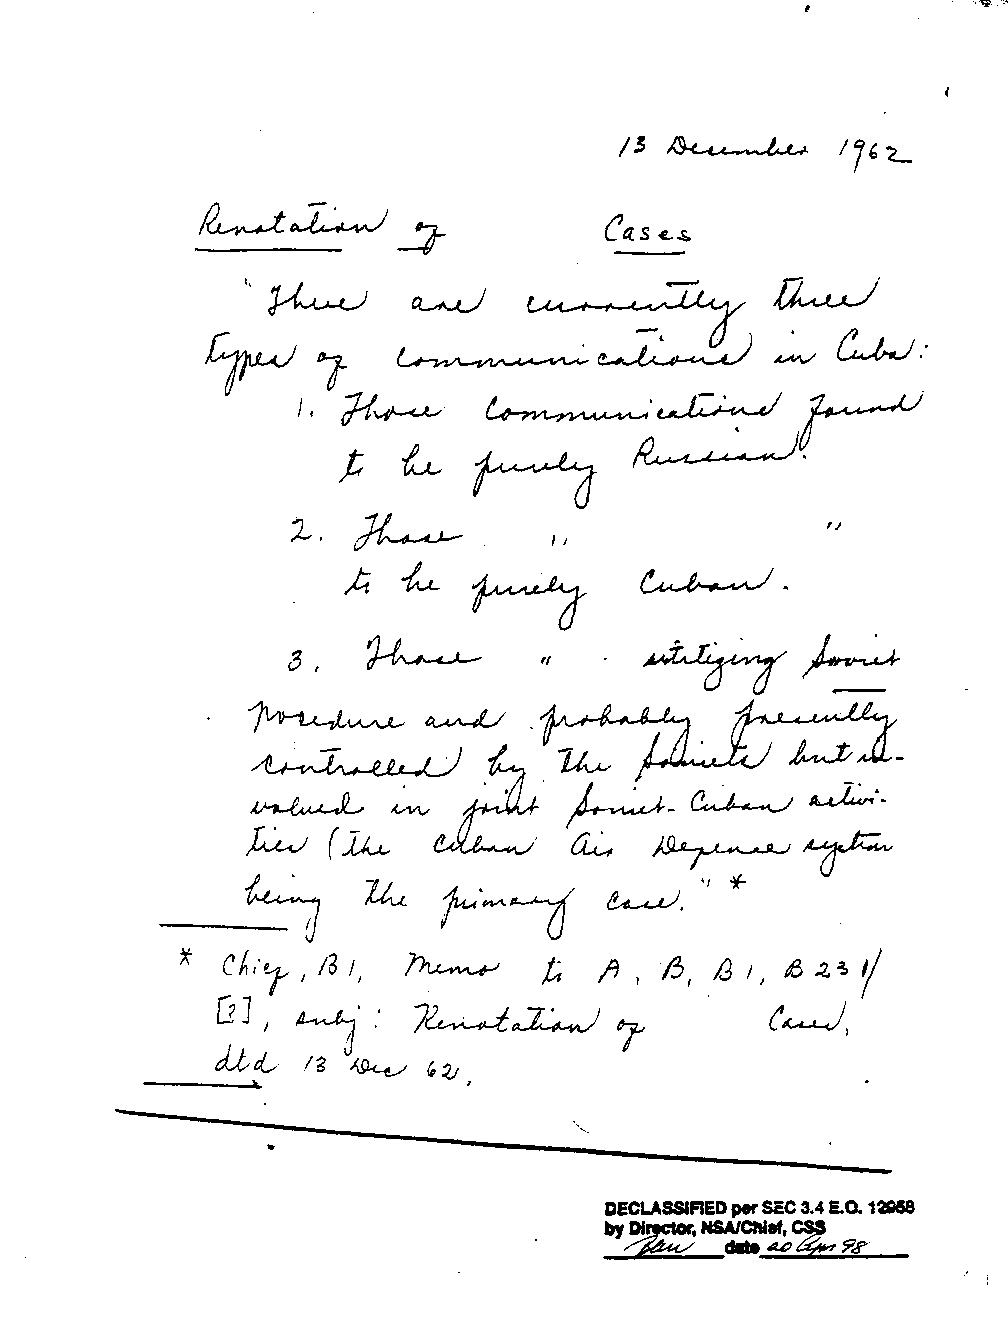 13 December 1962
Renotation of Cases
"There are currently three
types of communications in Cuba:
1. Those communications found
to be purely Russian.
2. Those " "
to be purely Cuban.
3. Those " utilizing Soviet
procedure and probably presently
controlled by the Soviets but in-
volved in joint Soviet-Cuban activi-
ties (the Cuban Air Defense system
being the primary case." *
* Chief, B1, Memo to A, B, B1, B231/
[?], subj: Renotation of Cases,
dtd 13 Dec 62.
DECLASSIFIED per SEC 3.4 E.O. 12958
by Director, NSA/Chief, CSS
date 20 Apr 98